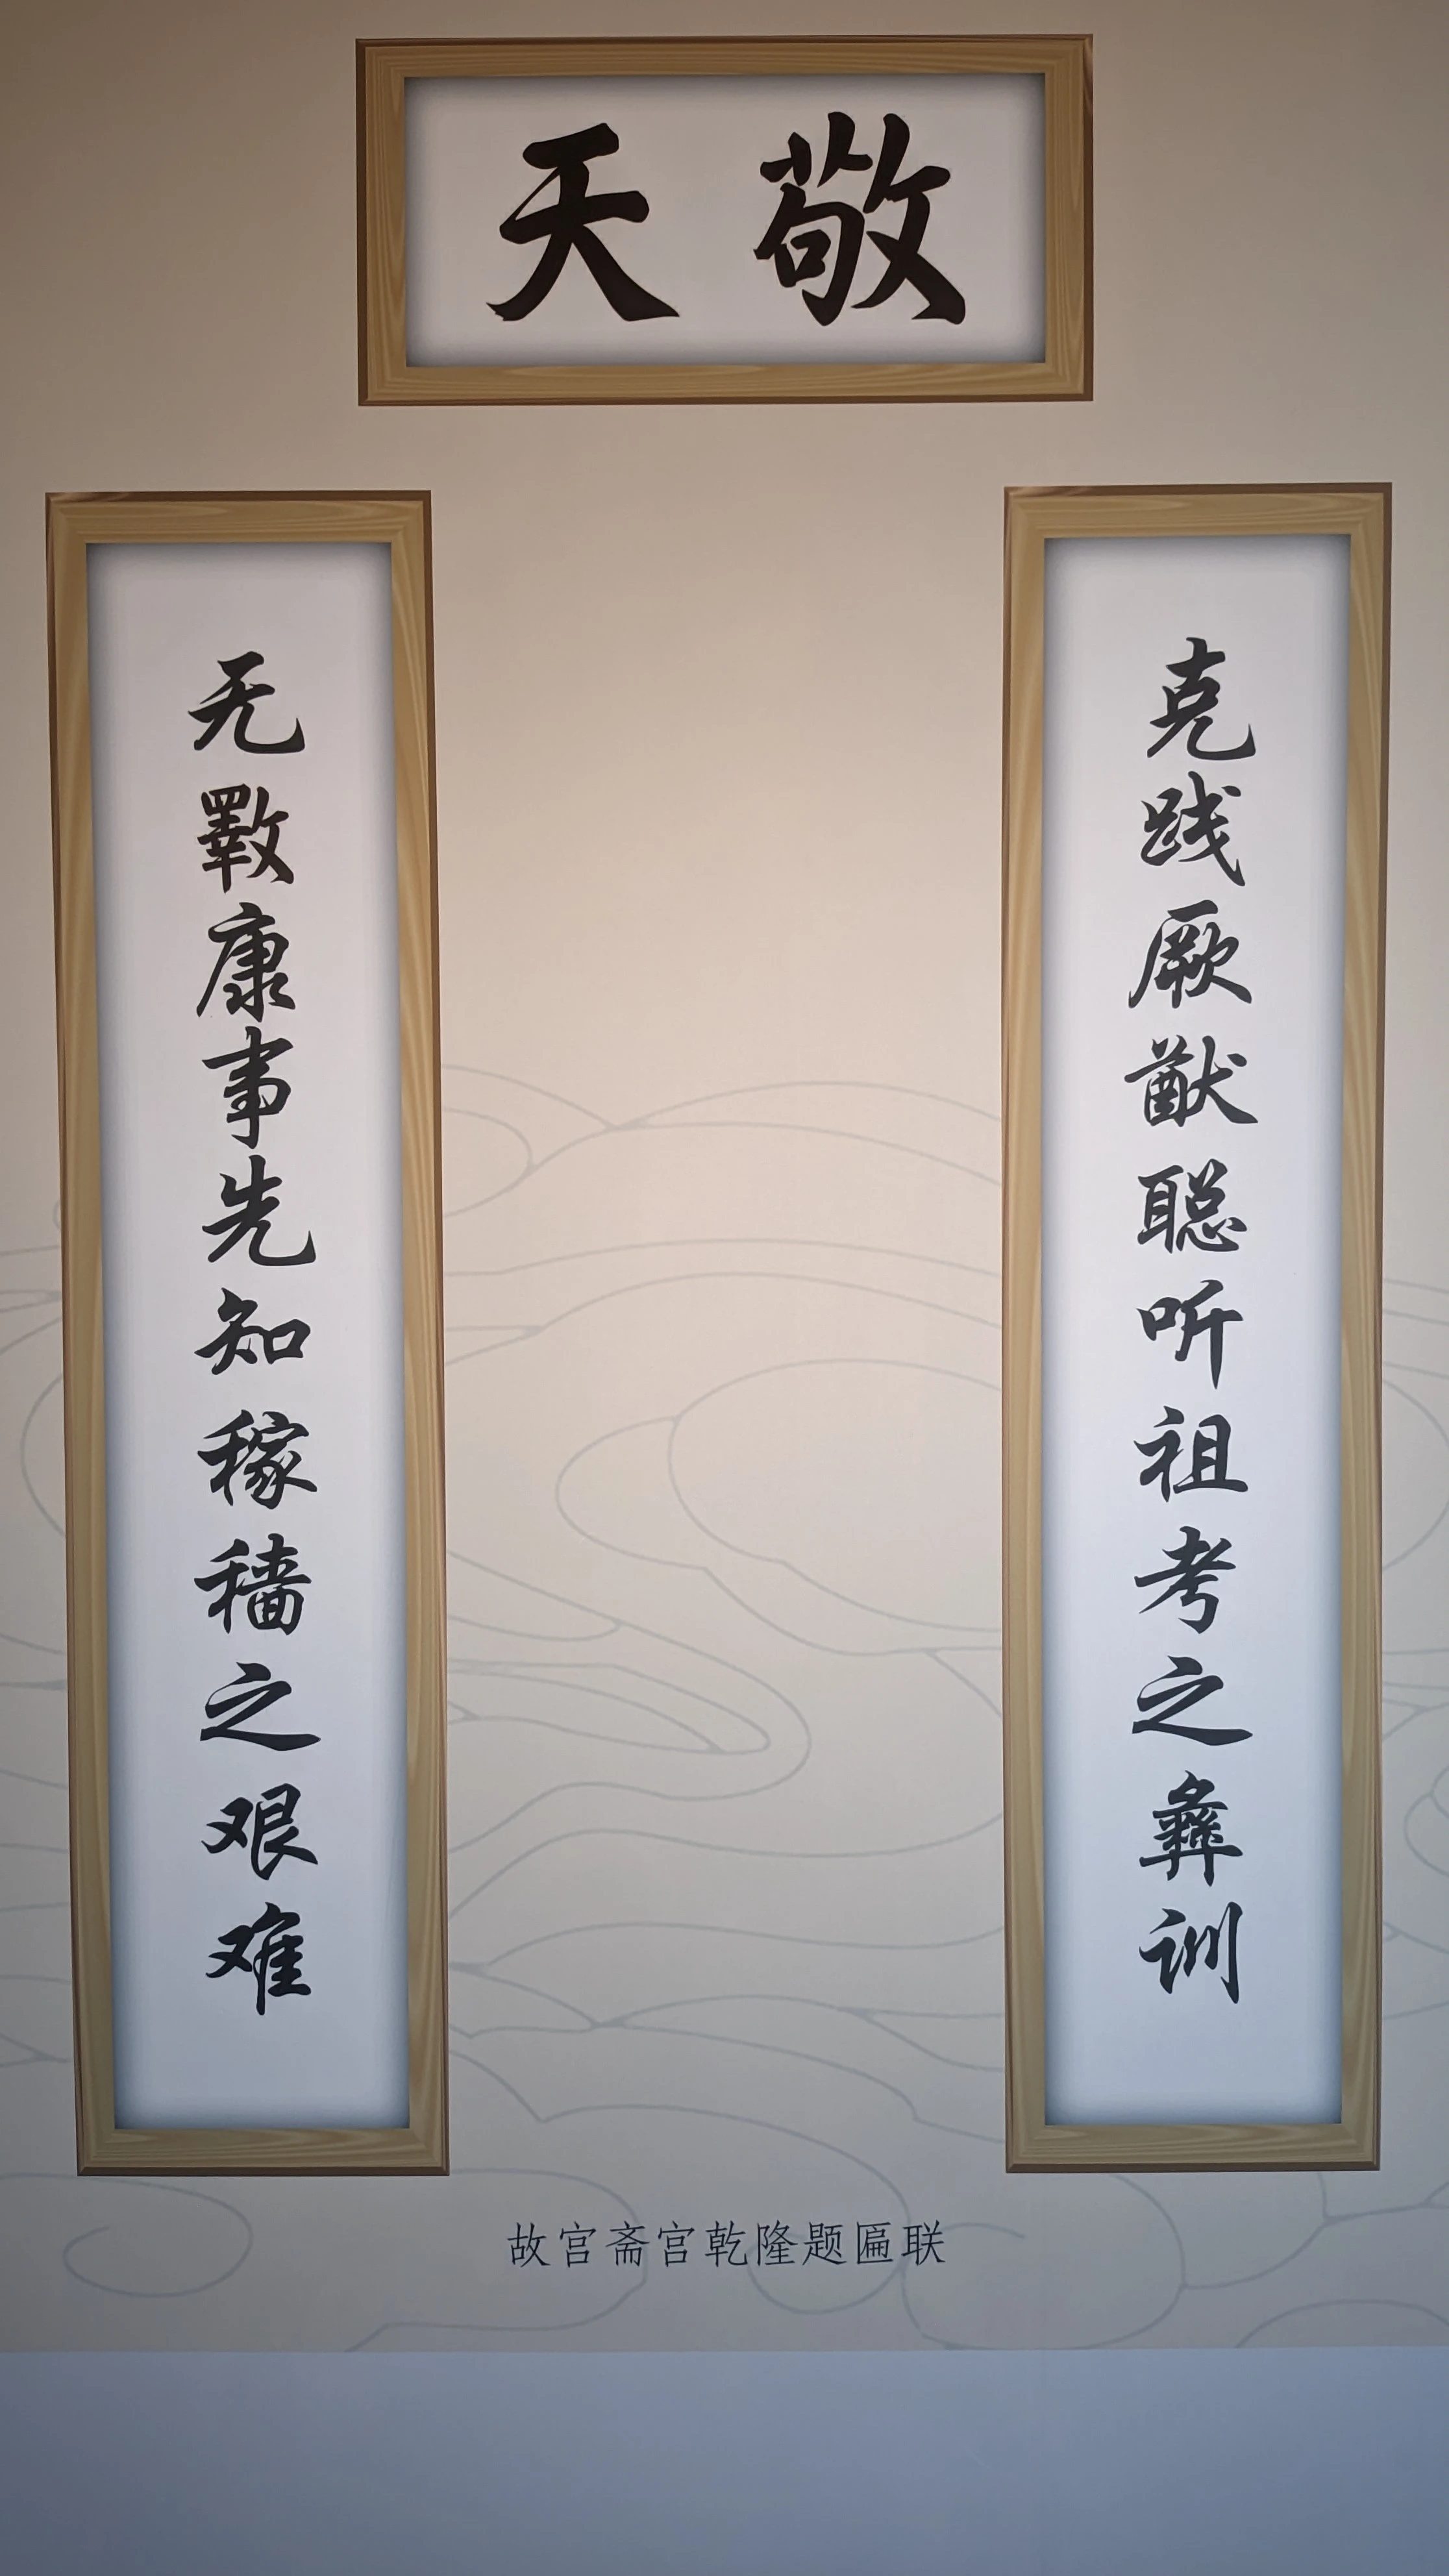 敬天
克践厥猷聪听祖考之彝训
无斁康事先知稼穑之艰难
故宫斋宫乾隆题匾联